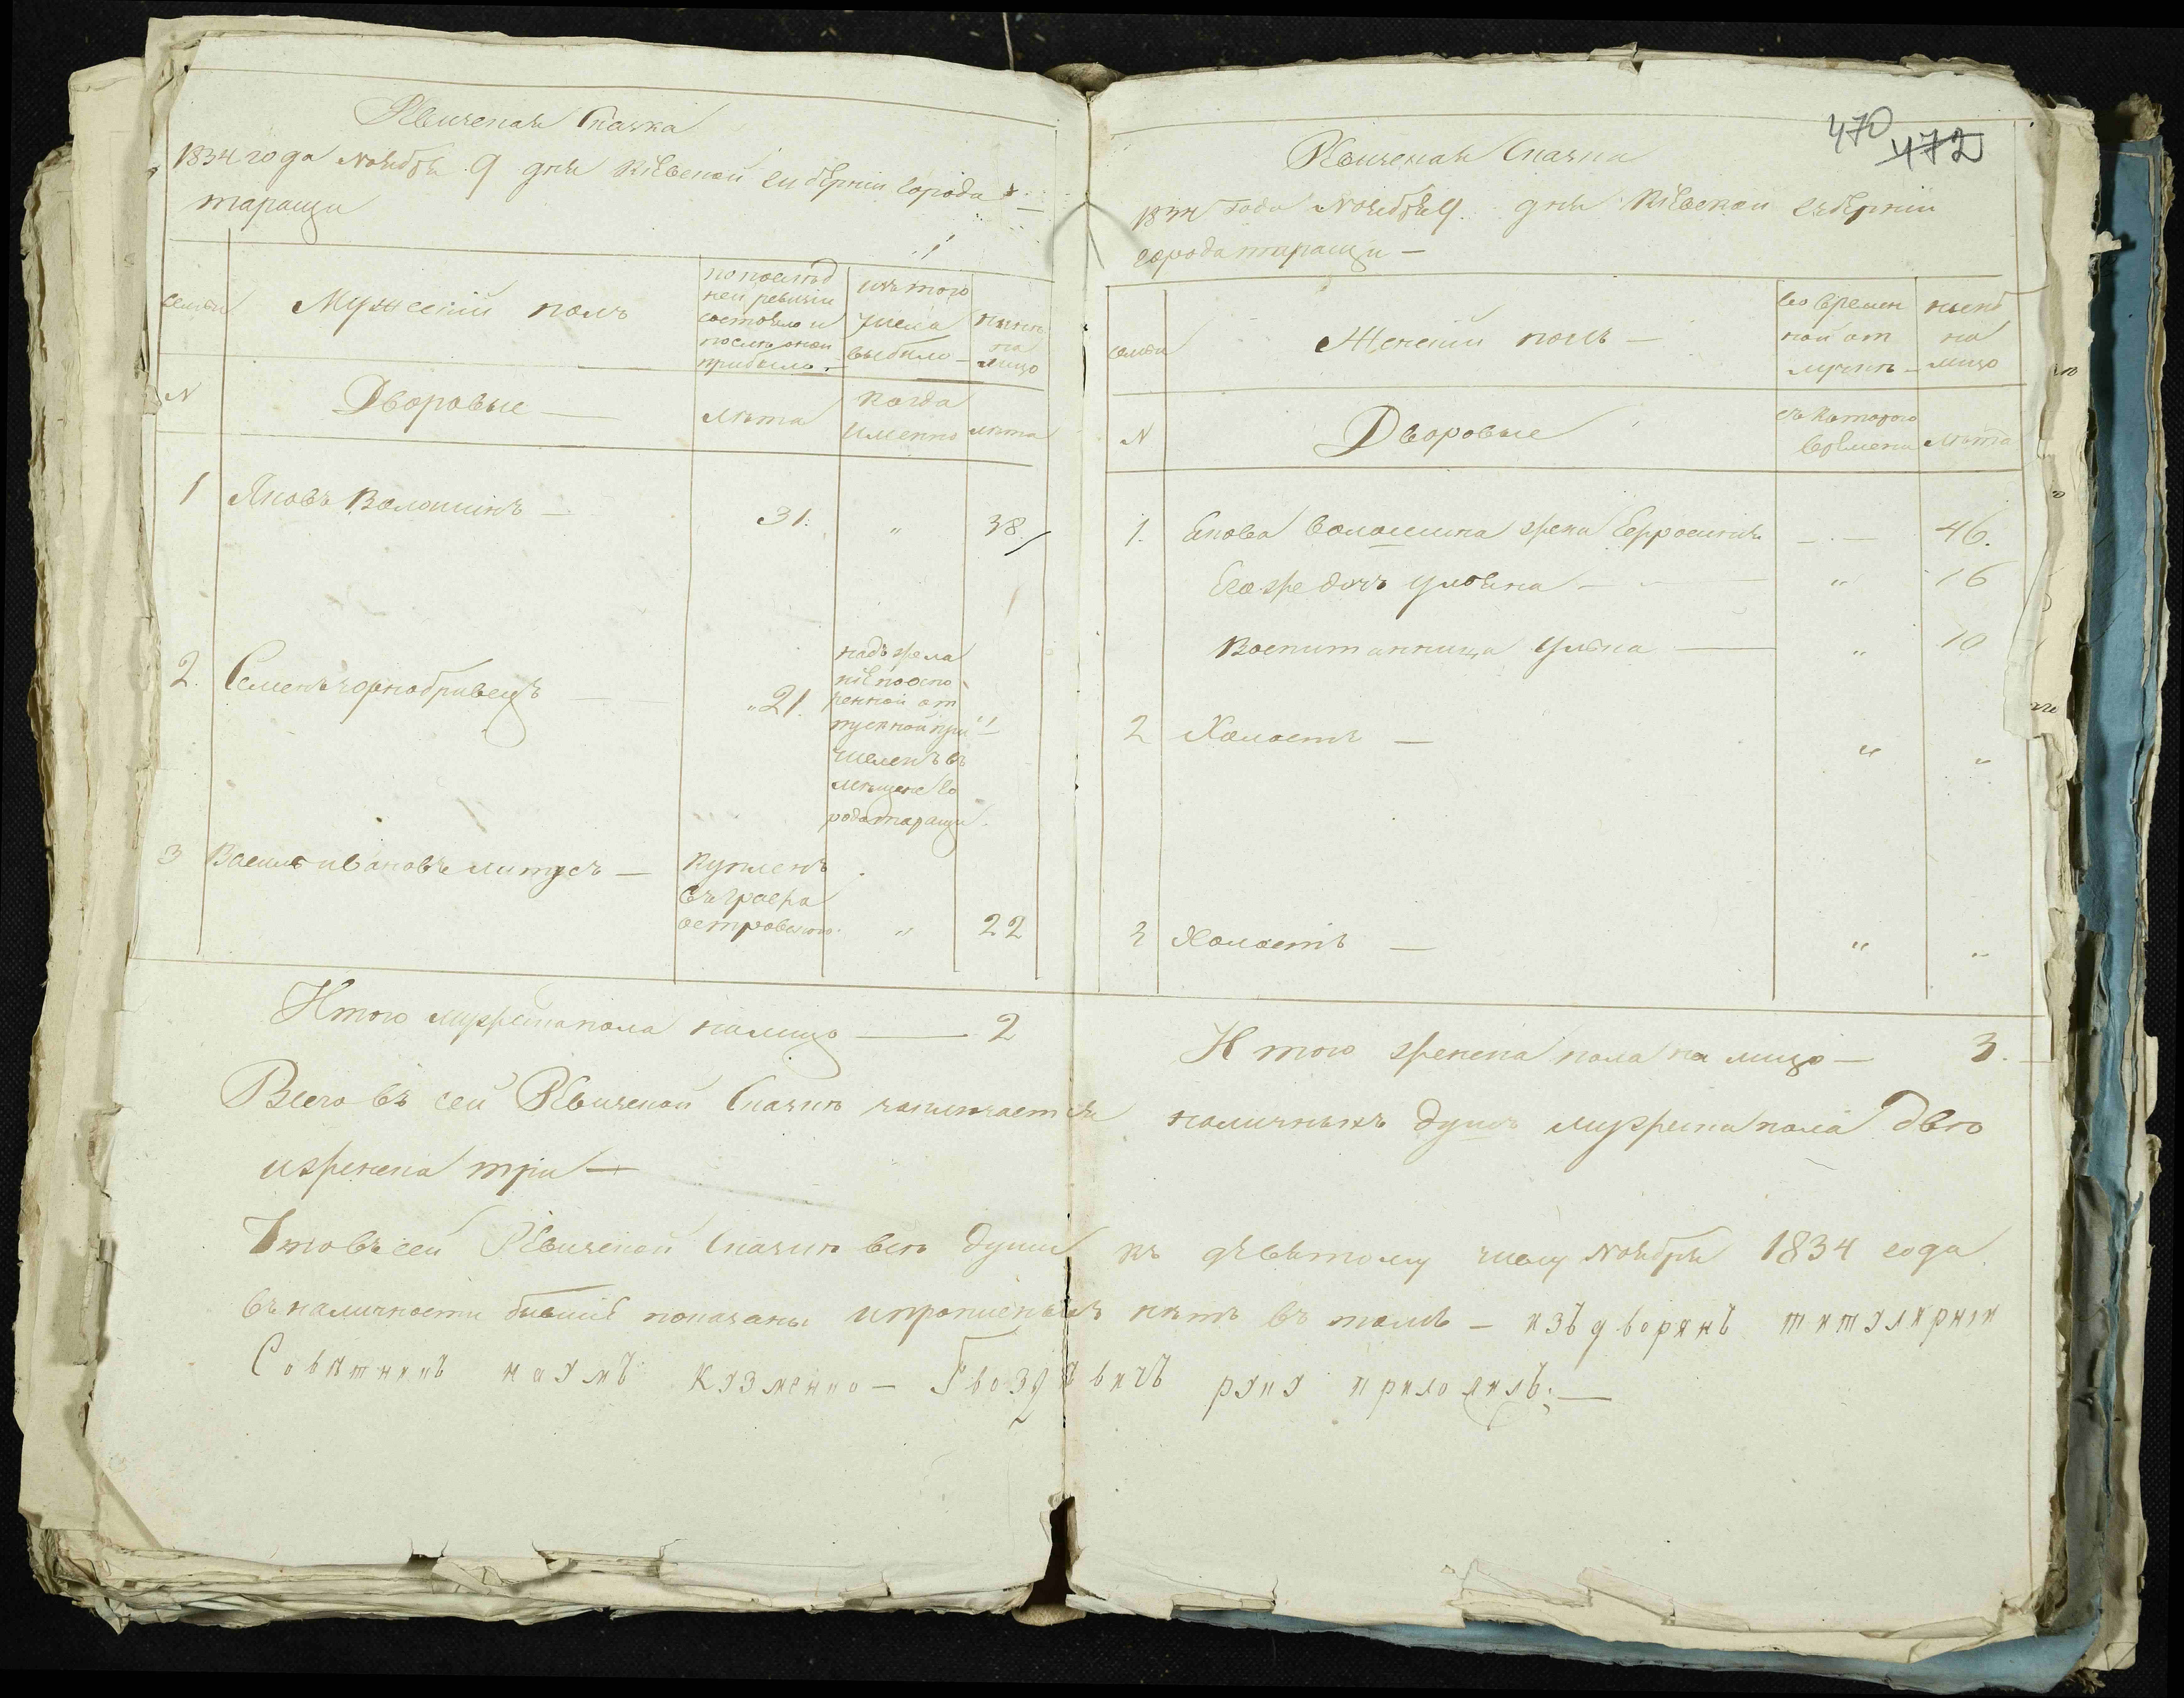 Ревижская Сказка
1834 года Ноября 9 дня Кіевской Губерніи города
таращи
семьи
Мужескій полъ
по послѣд
ней ревизіи
состояло и
послѣ оной
прибыло
изъ того
числа
выбыло
нынѣ
на
лицо
N
Дворовые
лѣта
когда
именно
лѣта
1 Яковъ Волошинъ — 31. „ 38.
2. Семенъ чорнобривецъ „21.
пущенной при
численъ въ
мещане го
рода таращи.
3 Василь ивановъ митусъ —
купленъ
въ Графа
островского. „ 22
Итого мужеска пола налицо — 2
470
472
Ревижская Сказка
1834 года Ноября 9. дня Кіевской Губерніи
города таращи —
семьи
Женскій полъ —
во времен
ной от
лучкѣ
нынѣ
на
лицо
N
Дворовые
съ Которого
времени
лѣта
1. Якова волошина жена Ефросинія — . — 46.
Его же дочь улияна — „ 16
Воспитанница 10
2 Холостъ — „ „
3 Холостъ — „ „
Итого женска пола на лицо — 3.
Всего въ сей Ревижской Сказкѣ заключается наличныхъ душъ мужеска пола два
и женска три —
Что въ сей Ревижской Сказкѣ всѣ души къ девятому числу Ноября 1834 года
въ наличности бывшіе показаны и прописныхъ нѣтъ въ томъ — изъ дворянъ титулярни
Совѣтникъ наумъ Кузменко — Гвоздѣвичъ руку приложилъ: —